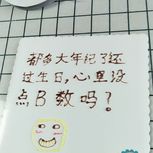 都多大年纪了还
过生日,心里没
点B数吗?